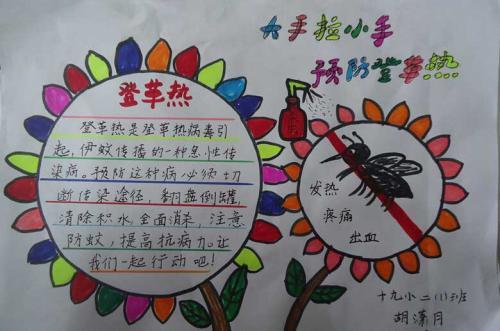 大手拉小手
预防登革热
登革热
登革热是登革热病毒引
起,伊蚊传播的一种急性传
染病。预防这种病必须切
断传染途径,翻盘倒罐,
清除积水,全面消杀,注意
防蚊,提高抗病力。让
我们一起行动吧!
发热
疼痛
出血
十九小二(1)班
胡潇月